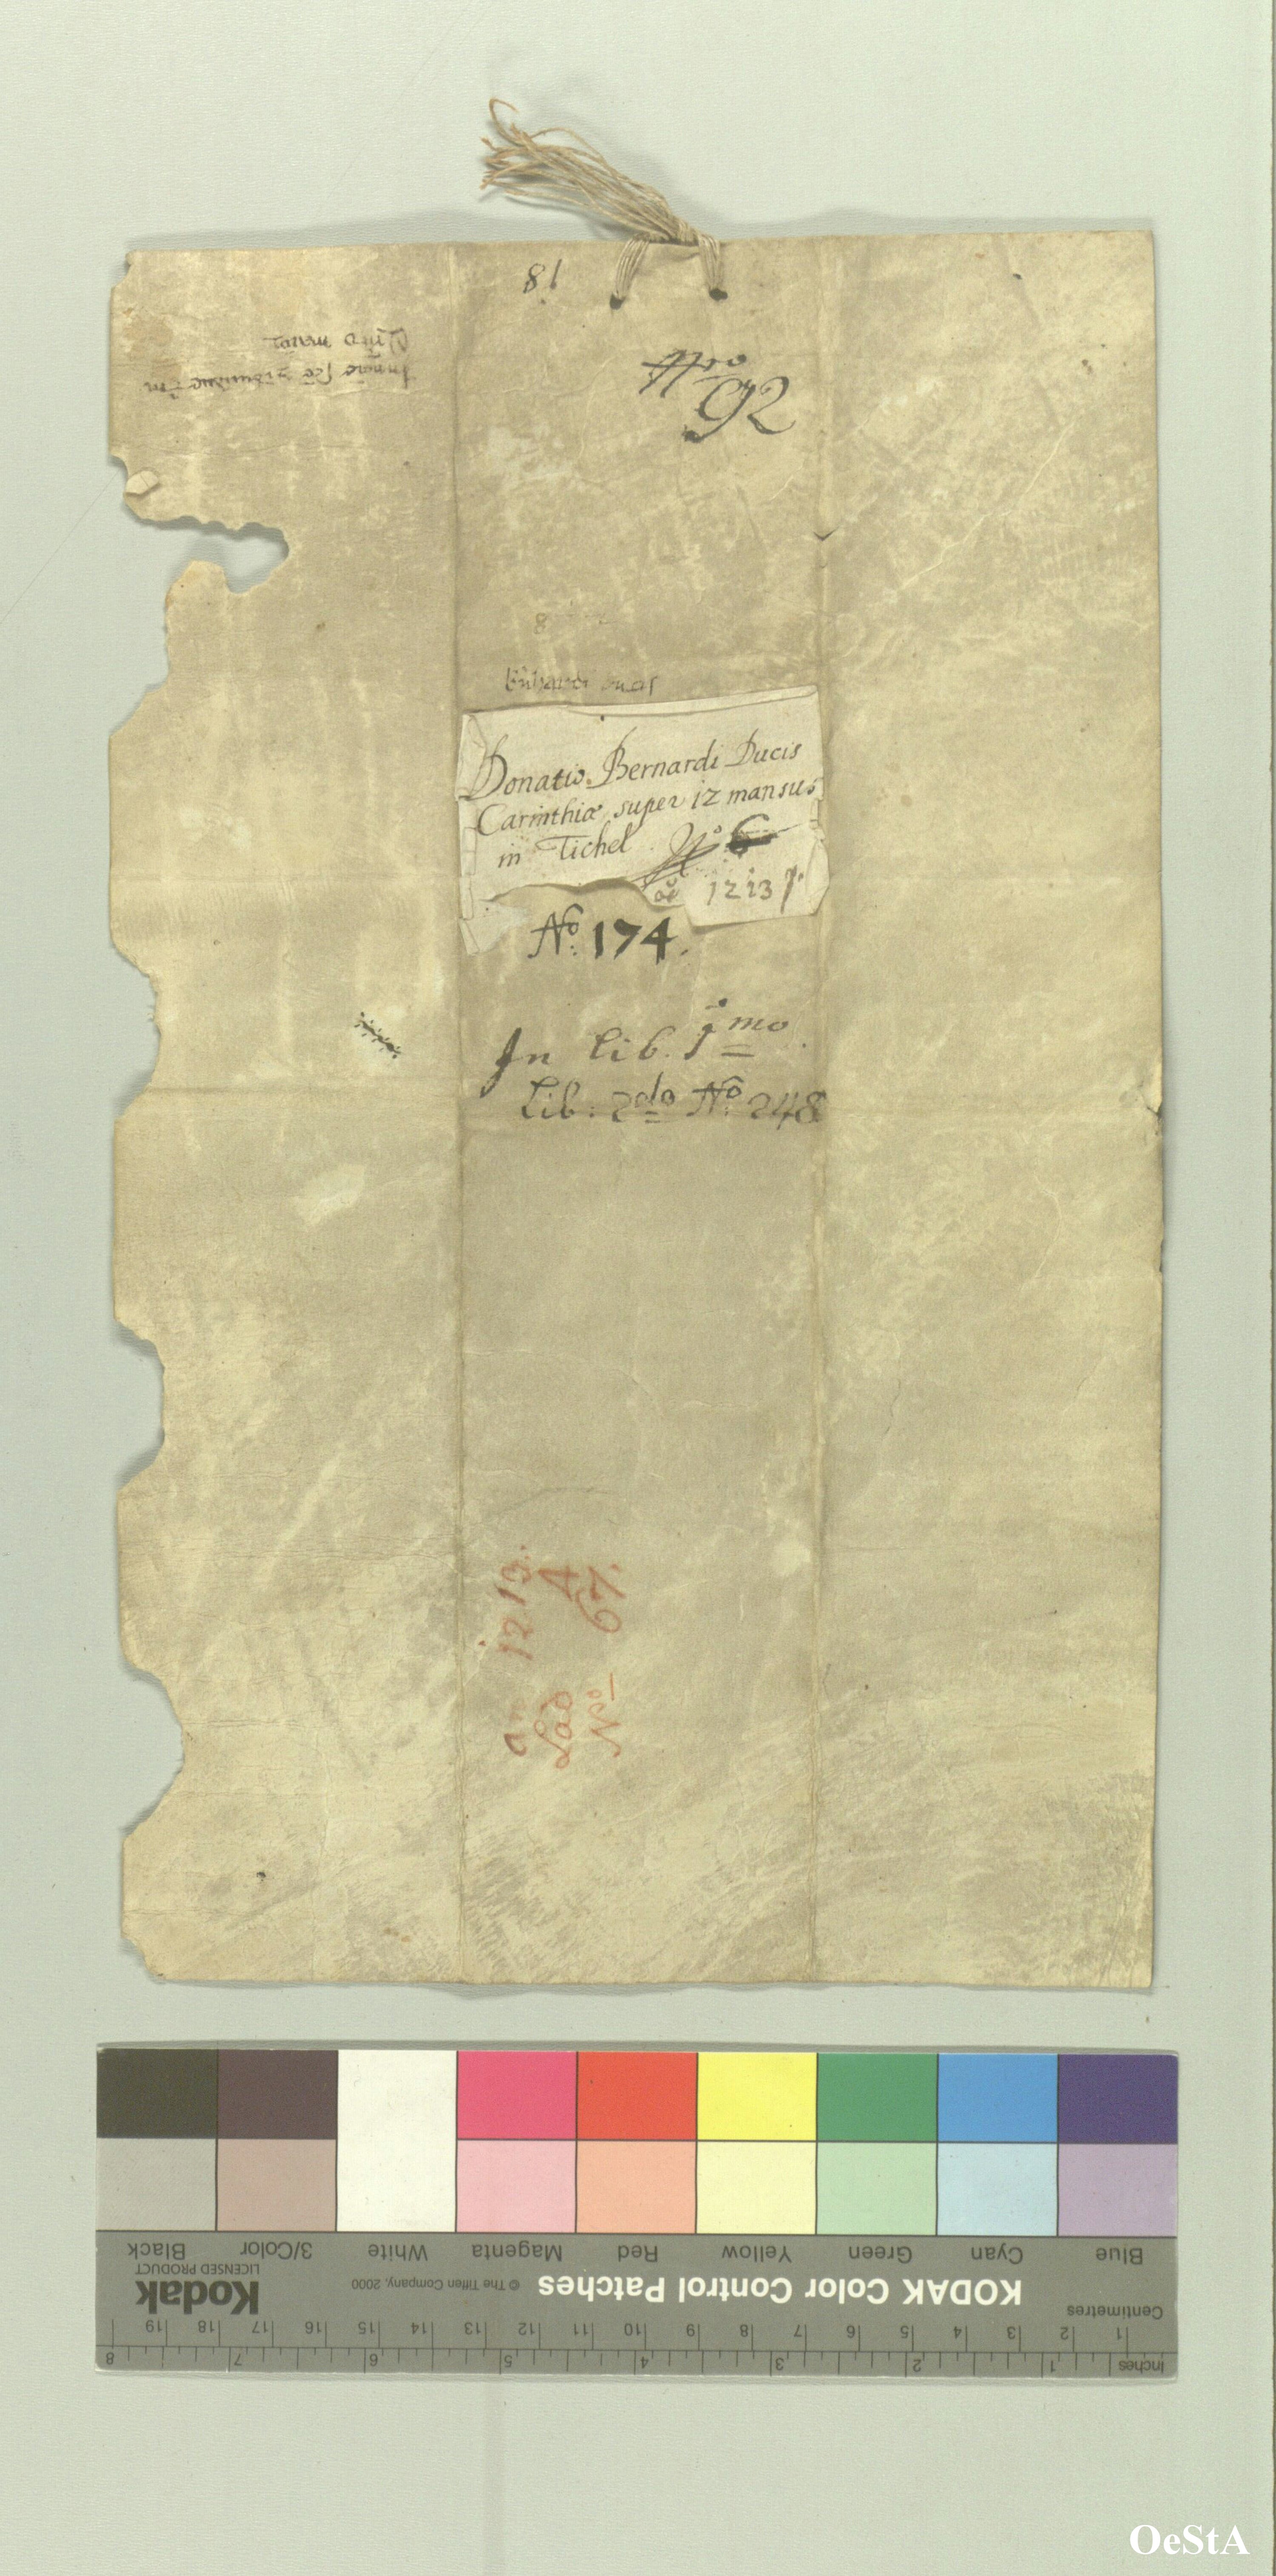 81
Nro
92
ducis
Donatio Bernardi Ducis
Carinthiæ super 12 mansus
in Tichel. No 6
1213
No. 174.
In lib. 1mo.
Lib: 2do No. 248
an 1213.
Lad A
No 67.
Black 3/Color White Magenta Red Yellow Green Cyan Blue
Kodak
LICENSED PRODUCT
KODAK Color Control Patches
© The Tiffen Company, 2000
Centimetres 1 2 3 4 5 6 7 8 9 10 11 12 13 14 15 16 17 18 19
Inches 1 2 3 4 5 6 7 8
OeStA